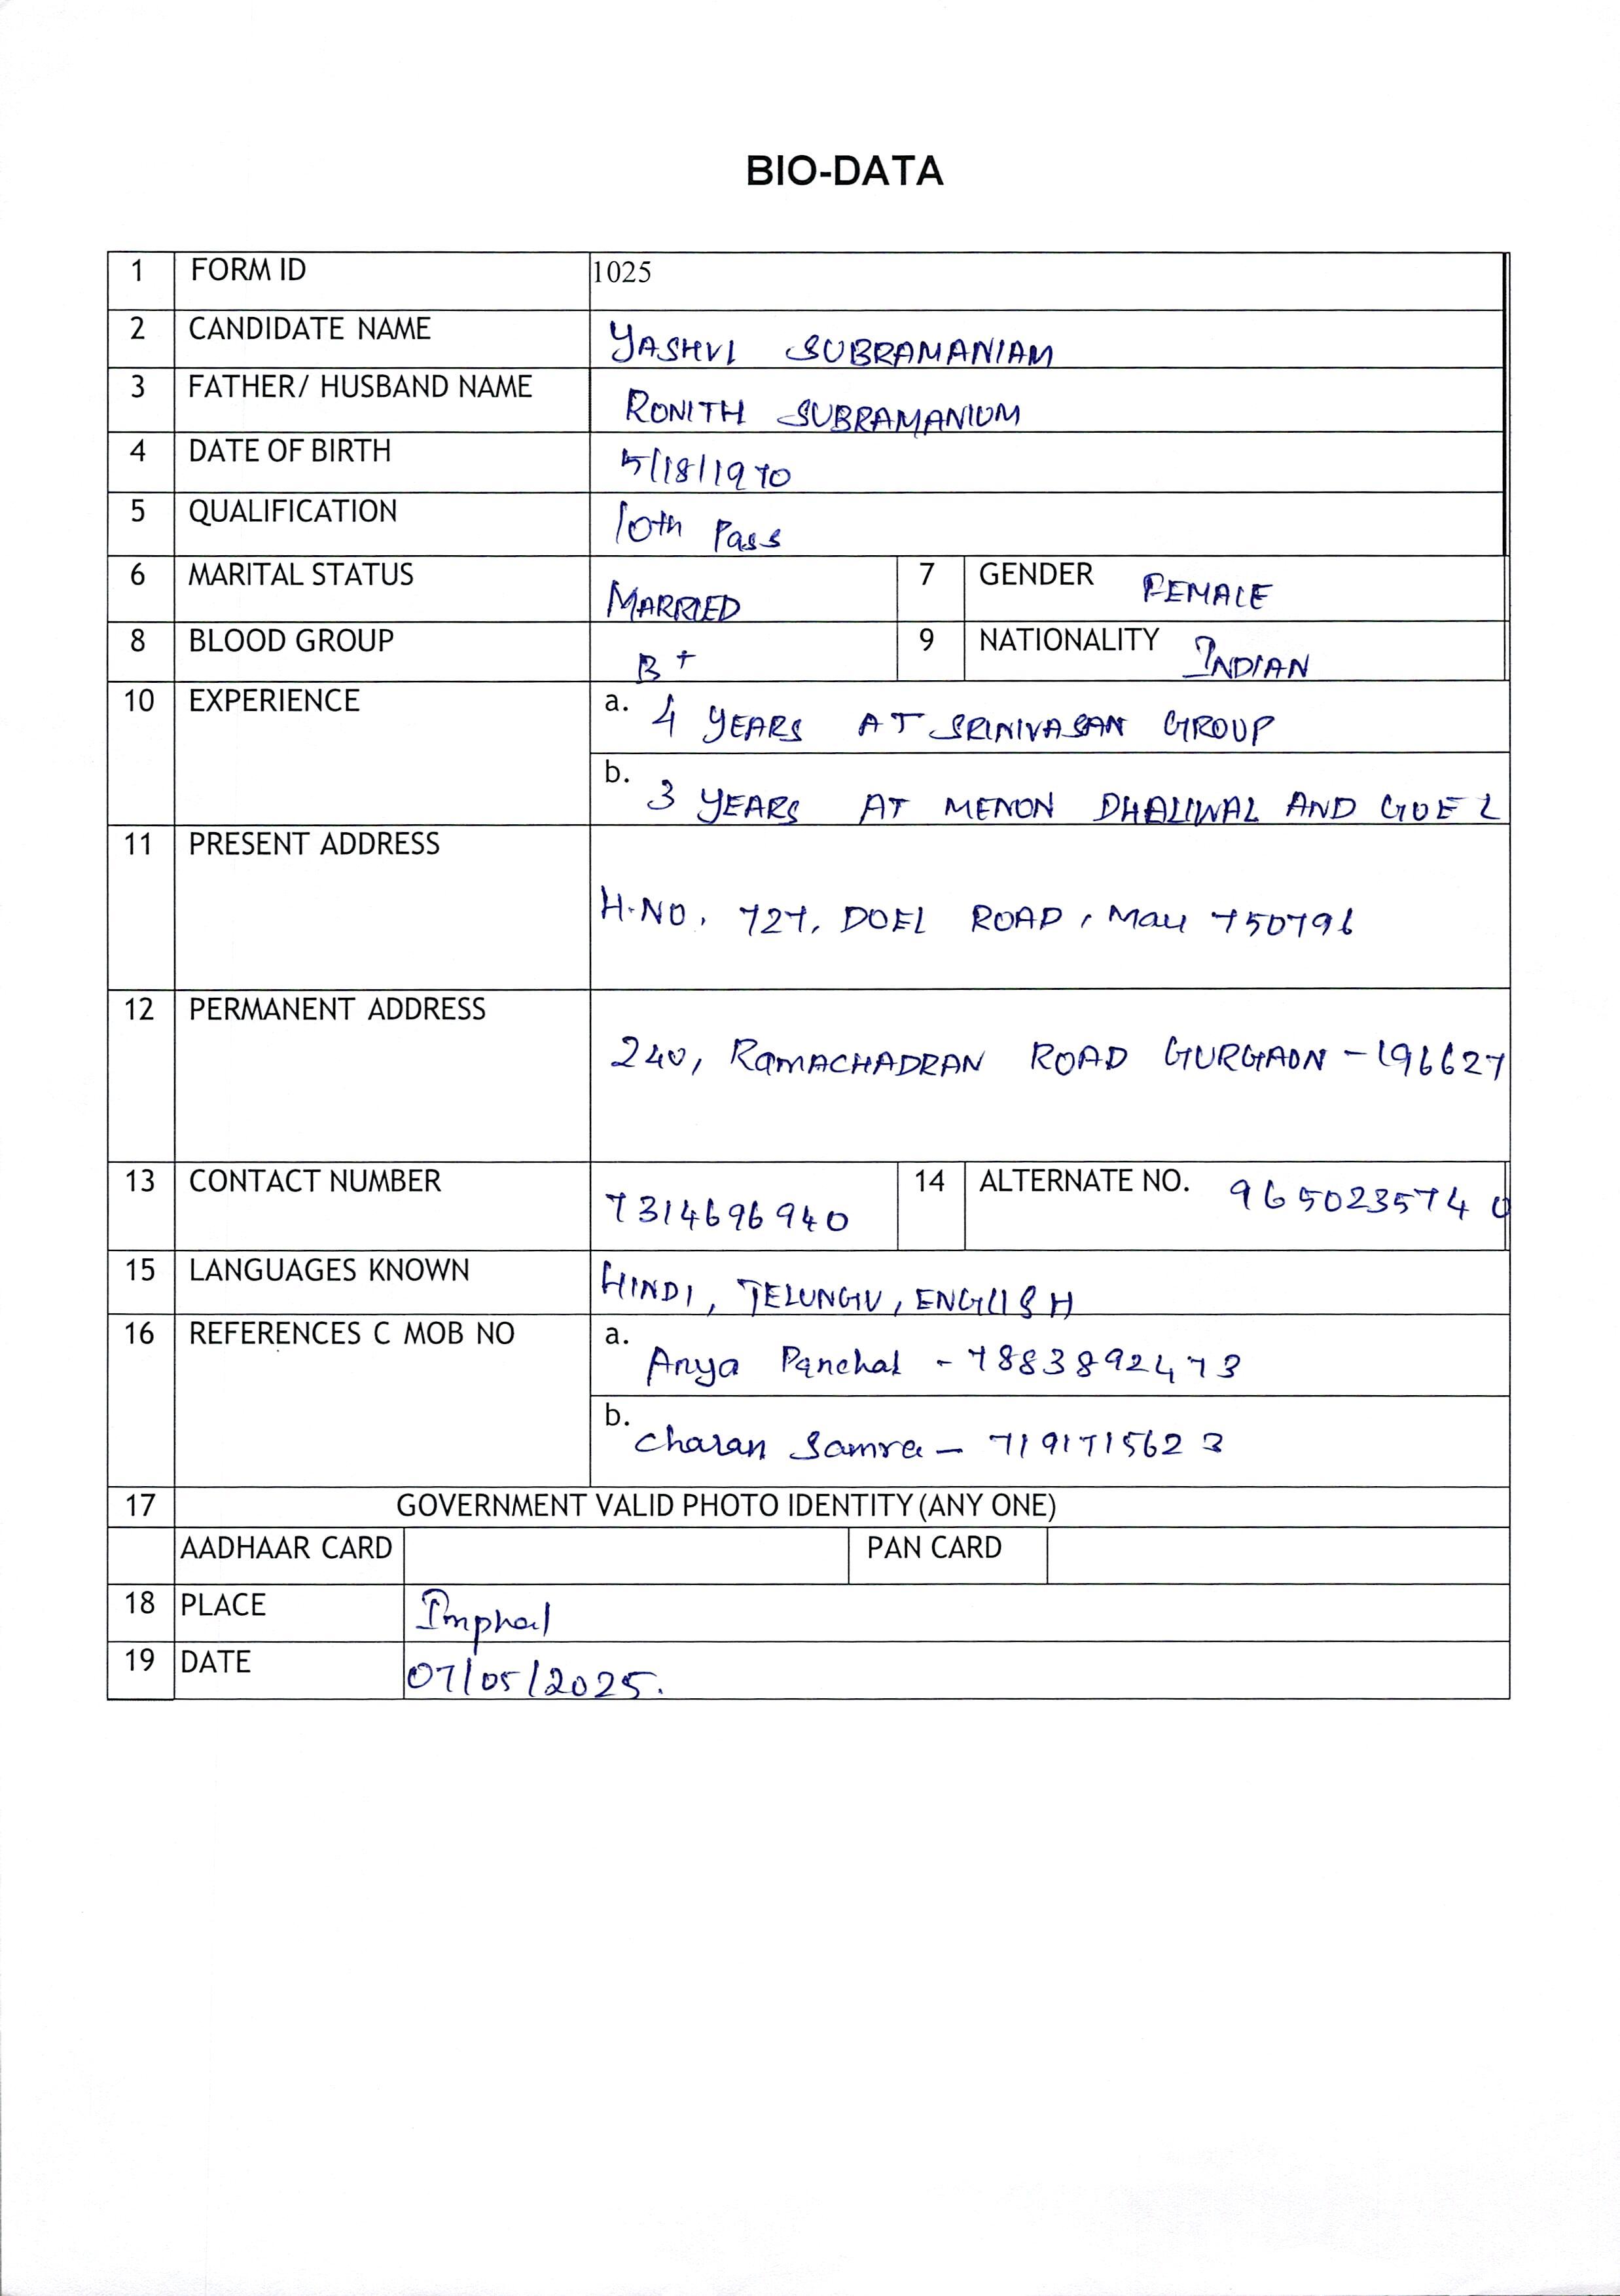 BIO-DATA
1 FORM ID 1025
2 CANDIDATE NAME YASHVI SUBRAMANIAM
3 FATHER/ HUSBAND NAME RONITH SUBRAMANIUM
4 DATE OF BIRTH 5/18/1970
5 QUALIFICATION 10th Pass
6 MARITAL STATUS MARRIED 7 GENDER FEMALE
8 BLOOD GROUP B+ 9 NATIONALITY INDIAN
10 EXPERIENCE a. 4 YEARS AT SRINIVASAN GROUP
b. 3 YEARS AT MENON DHALIWAL AND GOEL
11 PRESENT ADDRESS
H.NO, 727, DOEL ROAD, Mau 750796
12 PERMANENT ADDRESS
240, RAMACHADRAN ROAD GURGAON - 196627
13 CONTACT NUMBER 7314696940 14 ALTERNATE NO. 9650235740
15 LANGUAGES KNOWN HINDI, TELUNGU, ENGLISH
16 REFERENCES C MOB NO a. Anya Panchal - 7883892473
b. Charan Samra - 7191715623
17 GOVERNMENT VALID PHOTO IDENTITY (ANY ONE)
AADHAAR CARD PAN CARD
18 PLACE Imphal
19 DATE 07/05/2025.